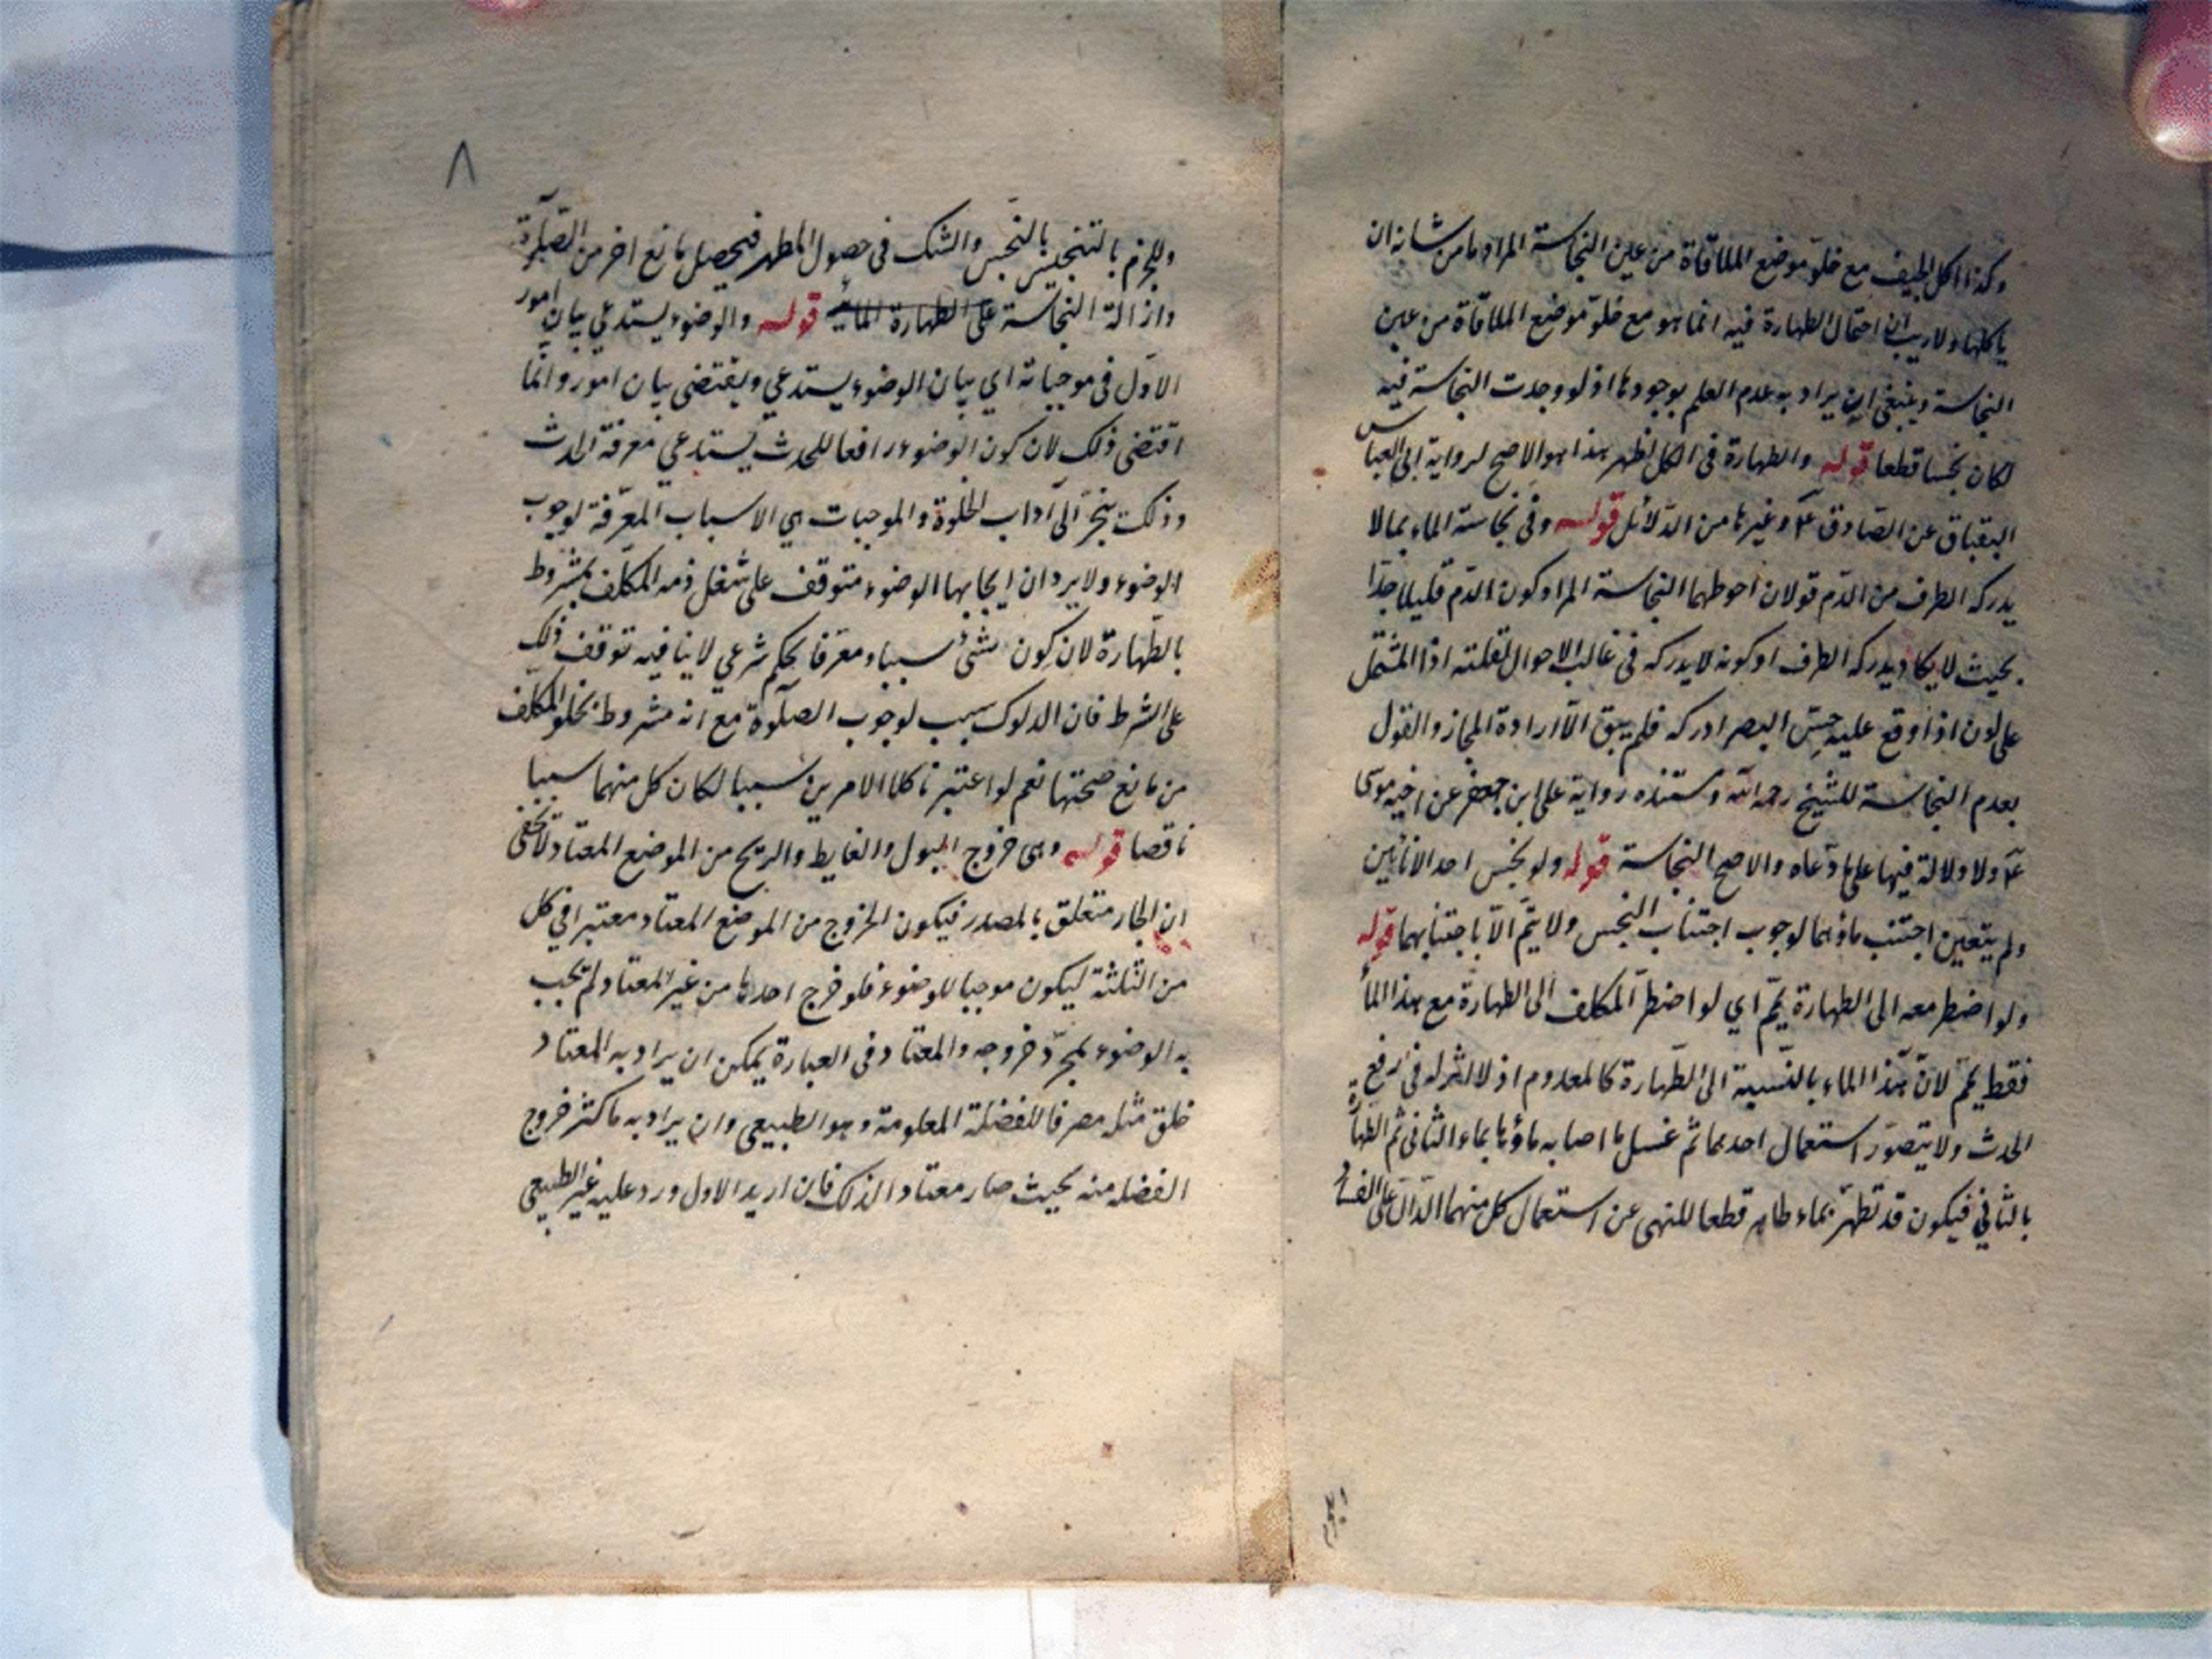 وكذا اكل الجيف مع خلو موضع الملاقاة من عين النجاسة المراد ما من شانه ان
ياكلها ولاريب ان احتمال الطهارة فيه انما هو مع خلو موضع الملاقاة من عين
النجاسة وينبغي ان يراد به عدم العلم بوجودها اذ لو وجدت النجاسة فيه
لكان نجسا قطعا قوله والطهارة في الكل اظهر هذا هو الاصح لرواية ابي العباس
البقباق عن الصادق ع وغيرها من الدلائل قوله وفي نجاسة الماء بما لا
يدركه الطرف من الدم قولان احوطهما النجاسة المراد كون الدم قليلا جدا
بحيث لا يكاد يدركه الطرف او كونه لا يدركه في غالب الاحوال لقلته اذا اشتمل
على لون اذا وقع عليه حس البصر ادركه فلم يبق الا ارادة المجاز والقول
بعدم النجاسة للشيخ رحمه الله ومستنده رواية على ابن جعفر عن اخيه موسى
ع ولا دلالة فيها على ما دعاه والاصح النجاسة قوله ولو نجس احد الانائين
ولم يتعين اجتنب ماؤهما لوجوب اجتناب النجس ولا يتم الا باجتنابهما قوله
ولو اضطر معه الى الطهارة يتمم اي لو اضطر المكلف الى الطهارة مع هذا الماء
فقط يتمم لان هذا الماء بالنسبة الى الطهارة كالمعدوم اذ لا اثر له في رفع
الحدث ولا يتصور استعمال احدهما ثم غسل ما اصابه ماؤها بماء الثاني ثم الطهارة
بالثاني فيكون قد تطهر بماء طاهر قطعا للنهي عن استعمال كل منهما الدال على الفساد
٨
وللجزم بالتنجيس بالنجس والشك في حصول المطهر فيحصل مانع اخر من الصلوة
وازالة النجاسة على الطهارة المائية قوله والوضوء يستدعي بيان امور
الاول في موجباته اي بيان الوضوء يستدعي ويقتضى بيان امور وانما
اقتضى ذلك لان كون الوضوء رافعا للحدث يستدعي معرفة الحدث
وذلك ينجر الى آداب الخلوة والموجبات هي الاسباب المعرفة لوجوب
الوضوء ولا يرد ان ايجابها الوضوء متوقف على شغل ذمه المكلف بمشروط
بالطهارة لان كون الشئ سببا ومعرفا لحكم شرعي لا ينافيه توقف ذلك
على الشرط فان الدلوك سبب لوجوب الصلوة مع انه مشروط بخلو المكلف
من مانع صحتها نعم لو اعتبرنا كلا الامرين سببا لكان كل منهما سببا
ناقصا قوله وهى خروج البول والغايط والريح من الموضع المعتاد لا يخفى
ان الجار متعلق بالمصدر فيكون الخروج من الموضع المعتاد معتبرا في كل
من الثلثة ليكون موجبا للوضوء فلو خرج احدها من غير المعتاد لم يجب
به الوضوء بمجرد خروجه والمعتاد في العبارة يمكن ان يراد به المعتاد
خلق مثله مصرفا للفضلة المعلومة وهو الطبيعي وان يراد به ما كثر خروج
الفضله منه بحيث صار معتادا لذلك فان اريد الاول ورد عليه غير الطبيعي